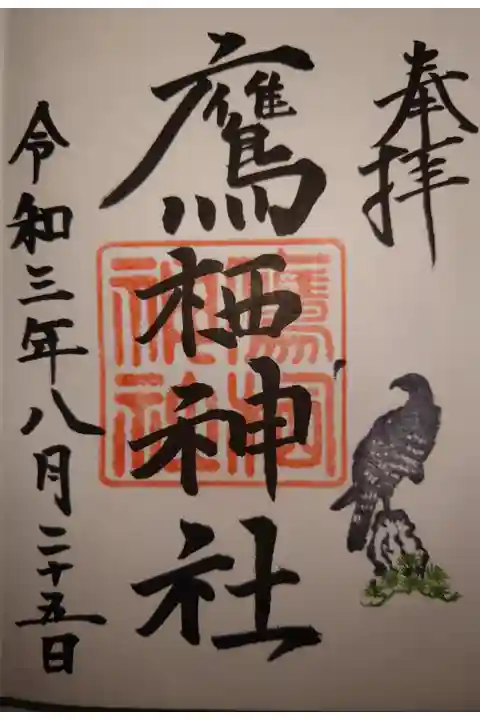 奉拝
鷹栖神社
鷹栖神社
令和三年八月二十五日